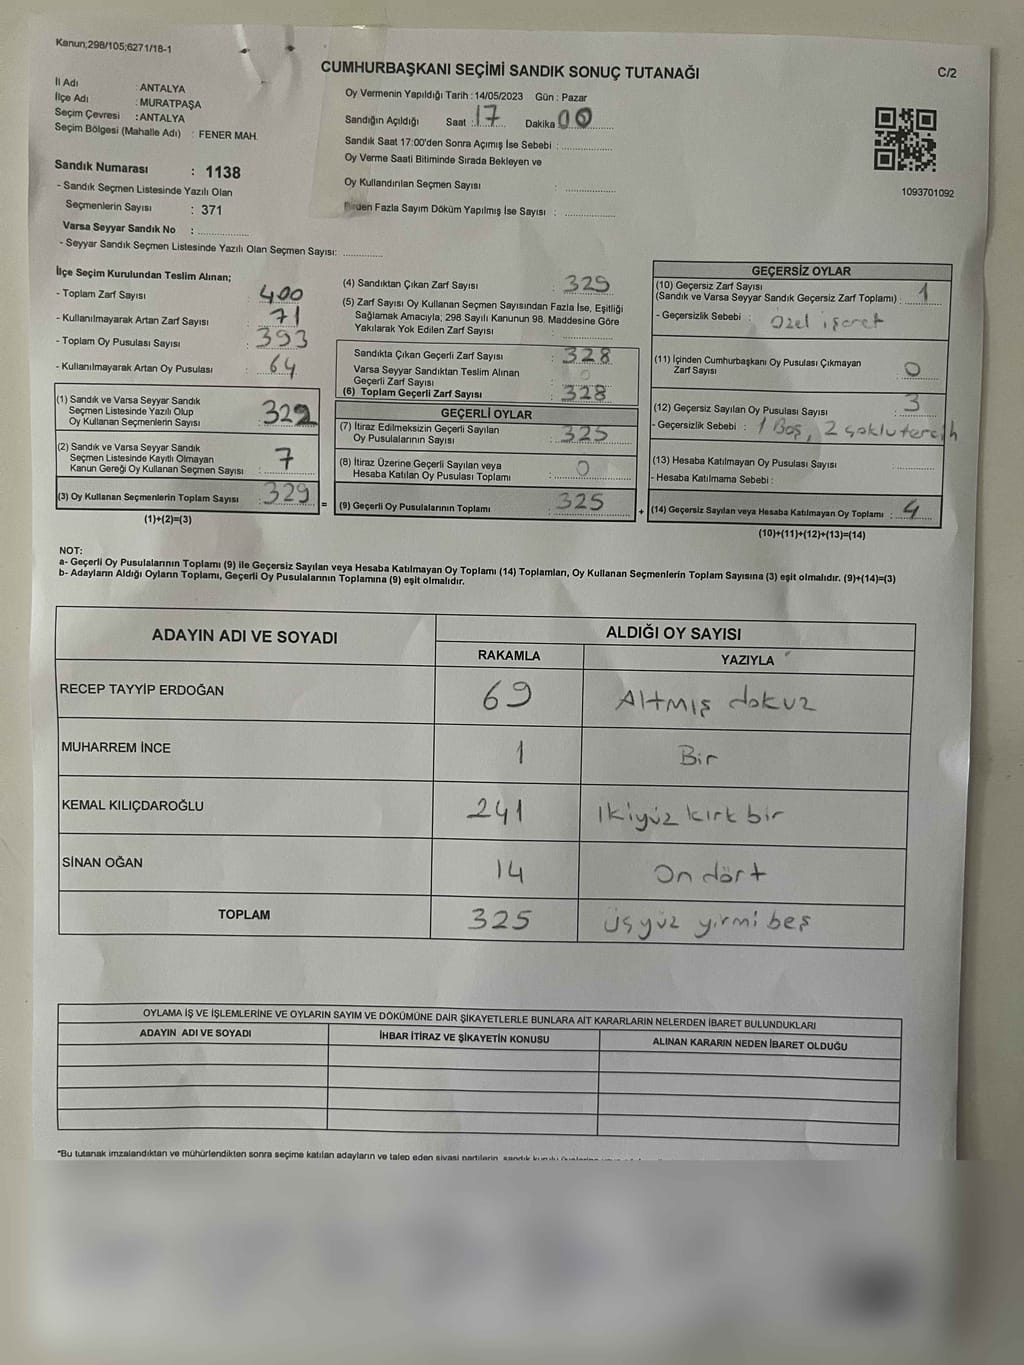 Kanun;298/105;6271/18-1
CUMHURBAŞKANI SEÇİMİ SANDIK SONUÇ TUTANAĞI
C/2
İl Adı : ANTALYA
İlçe Adı : MURATPAŞA
Seçim Çevresi : ANTALYA
Seçim Bölgesi (Mahalle Adı) : FENER MAH.
Sandık Numarası : 1138
- Sandık Seçmen Listesinde Yazılı Olan
Seçmenlerin Sayısı : 371
Varsa Seyyar Sandık No : ..............
- Seyyar Sandık Seçmen Listesinde Yazılı Olan Seçmen Sayısı: ............
Oy Vermenin Yapıldığı Tarih : 14/05/2023 Gün : Pazar
Sandığın Açıldığı Saat : 17 Dakika 00
Sandık Saat 17:00'den Sonra Açımış İse Sebebi : ..............
Oy Verme Saati Bitiminde Sırada Bekleyen ve
Oy Kullandırılan Seçmen Sayısı : ..............
Fazla Sayım Döküm Yapılmış İse Sayısı : ..............
1093701092
İlçe Seçim Kurulundan Teslim Alınan;
- Toplam Zarf Sayısı : 400
- Kullanılmayarak Artan Zarf Sayısı : 71
- Toplam Oy Pusulası Sayısı : 393
- Kullanılmayarak Artan Oy Pusulası : 64
(1) Sandık ve Varsa Seyyar Sandık
Seçmen Listesinde Yazılı Olup
Oy Kullanan Seçmenlerin Sayısı 322
(2) Sandık ve Varsa Seyyar Sandık
Seçmen Listesinde Kayıtlı Olmayan
Kanun Gereği Oy Kullanan Seçmen Sayısı : 7
(3) Oy Kullanan Seçmenlerin Toplam Sayısı : 329
(1)+(2)=(3)
(4) Sandıktan Çıkan Zarf Sayısı : 329
(5) Zarf Sayısı Oy Kullanan Seçmen Sayısından Fazla İse, Eşitliği
Sağlamak Amacıyla; 298 Sayılı Kanunun 98. Maddesine Göre
Yakılarak Yok Edilen Zarf Sayısı : ..............
Sandıkta Çıkan Geçerli Zarf Sayısı : 328
Varsa Seyyar Sandıktan Teslim Alınan
Geçerli Zarf Sayısı : 0
(6) Toplam Geçerli Zarf Sayısı : 328
GEÇERLİ OYLAR
(7) İtiraz Edilmeksizin Geçerli Sayılan
Oy Pusulalarının Sayısı : 325
(8) İtiraz Üzerine Geçerli Sayılan veya
Hesaba Katılan Oy Pusulaları Toplamı : 0
= (9) Geçerli Oy Pusulalarının Toplamı : 325 +
GEÇERSİZ OYLAR
(10) Geçersiz Zarf Sayısı
(Sandık ve Varsa Seyyar Sandık Geçersiz Zarf Toplamı) : 1
- Geçersizlik Sebebi : Özel işaret
(11) İçinden Cumhurbaşkanı Oy Pusulası Çıkmayan
Zarf Sayısı : 0
(12) Geçersiz Sayılan Oy Pusulası Sayısı : 3
- Geçersizlik Sebebi : 1 Boş, 2 çoklu tercih
(13) Hesaba Katılmayan Oy Pusulası Sayısı : ..............
- Hesaba Katılmama Sebebi :
(14) Geçersiz Sayılan veya Hesaba Katılmayan Oy Toplamı : 4
(10)+(11)+(12)+(13)=(14)
NOT:
a- Geçerli Oy Pusulalarının Toplamı (9) ile Geçersiz Sayılan veya Hesaba Katılmayan Oy Toplamı (14) Toplamları, Oy Kullanan Seçmenlerin Toplam Sayısına (3) eşit olmalıdır. (9)+(14)=(3)
b- Adayların Aldığı Oyların Toplamı, Geçerli Oy Pusulalarının Toplamına (9) eşit olmalıdır.
ADAYIN ADI VE SOYADI
ALDIĞI OY SAYISI
RAKAMLA YAZIYLA
RECEP TAYYİP ERDOĞAN 69 Altmış dokuz
MUHARREM İNCE 1 Bir
KEMAL KILIÇDAROĞLU 241 İkiyüz kırk bir
SİNAN OĞAN 14 On dört
TOPLAM 325 üçyüz yirmi beş
OYLAMA İŞ VE İŞLEMLERİNE VE OYLARIN SAYIM VE DÖKÜMÜNE DAİR ŞİKAYETLERLE BUNLARA AİT KARARLARIN NELERDEN İBARET BULUNDUKLARI
ADAYIN ADI VE SOYADI İHBAR İTİRAZ VE ŞİKAYETİN KONUSU ALINAN KARARIN NEDEN İBARET OLDUĞU
*Bu tutanak imzalandıktan ve mühürlendikten sonra seçime katılan adayların ve talep eden siyasi partilerin, sandık kurulu